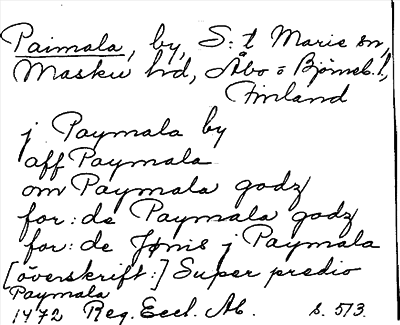 Paimala, by, S:t Marie sn,
Masku hd, Åbo o Björneb. l,
Finland
j Paymala by
aff Paymala
om Paymala godz
for: de Paymala godz
for: de Jönis j Paymala
[överskrift:] Super predio
Paymala
1472 Reg. Eccl. Ab. s. 513.